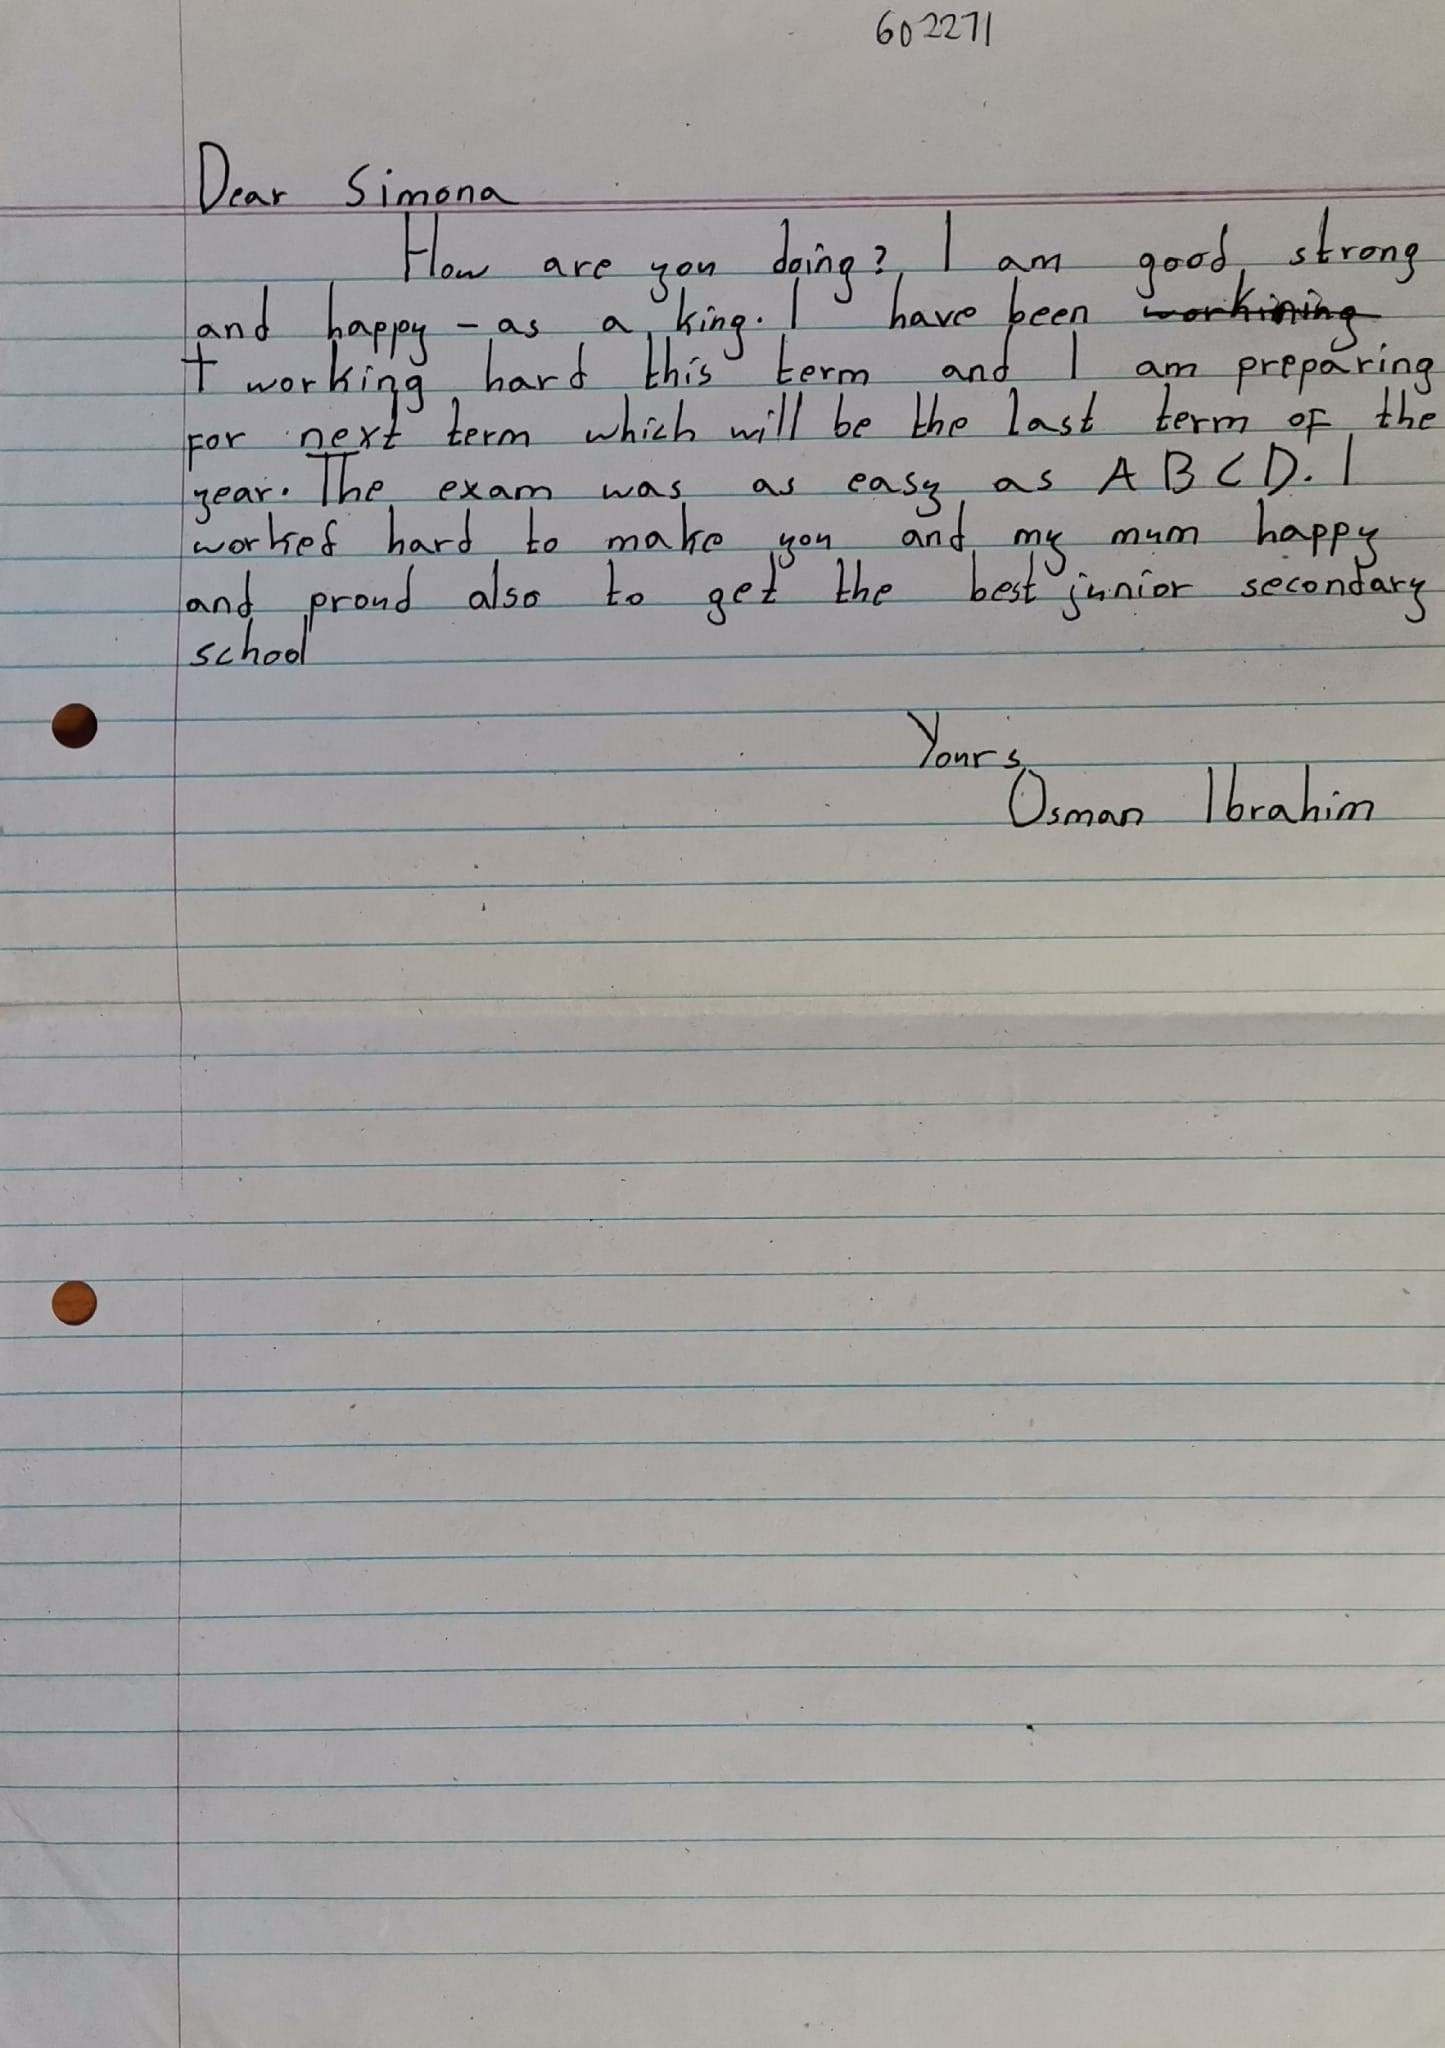 602271
Dear Simona
How are you doing? I am good, strong
and happy - as a king. I have been workining
t working hard this term and I am preparing
for next term which will be the last term of the
year. The exam was as easy as A B C D. I
worked hard to make you and my mum happy
and proud also to get the best junior secondary
school
Yours,
Osman Ibrahim